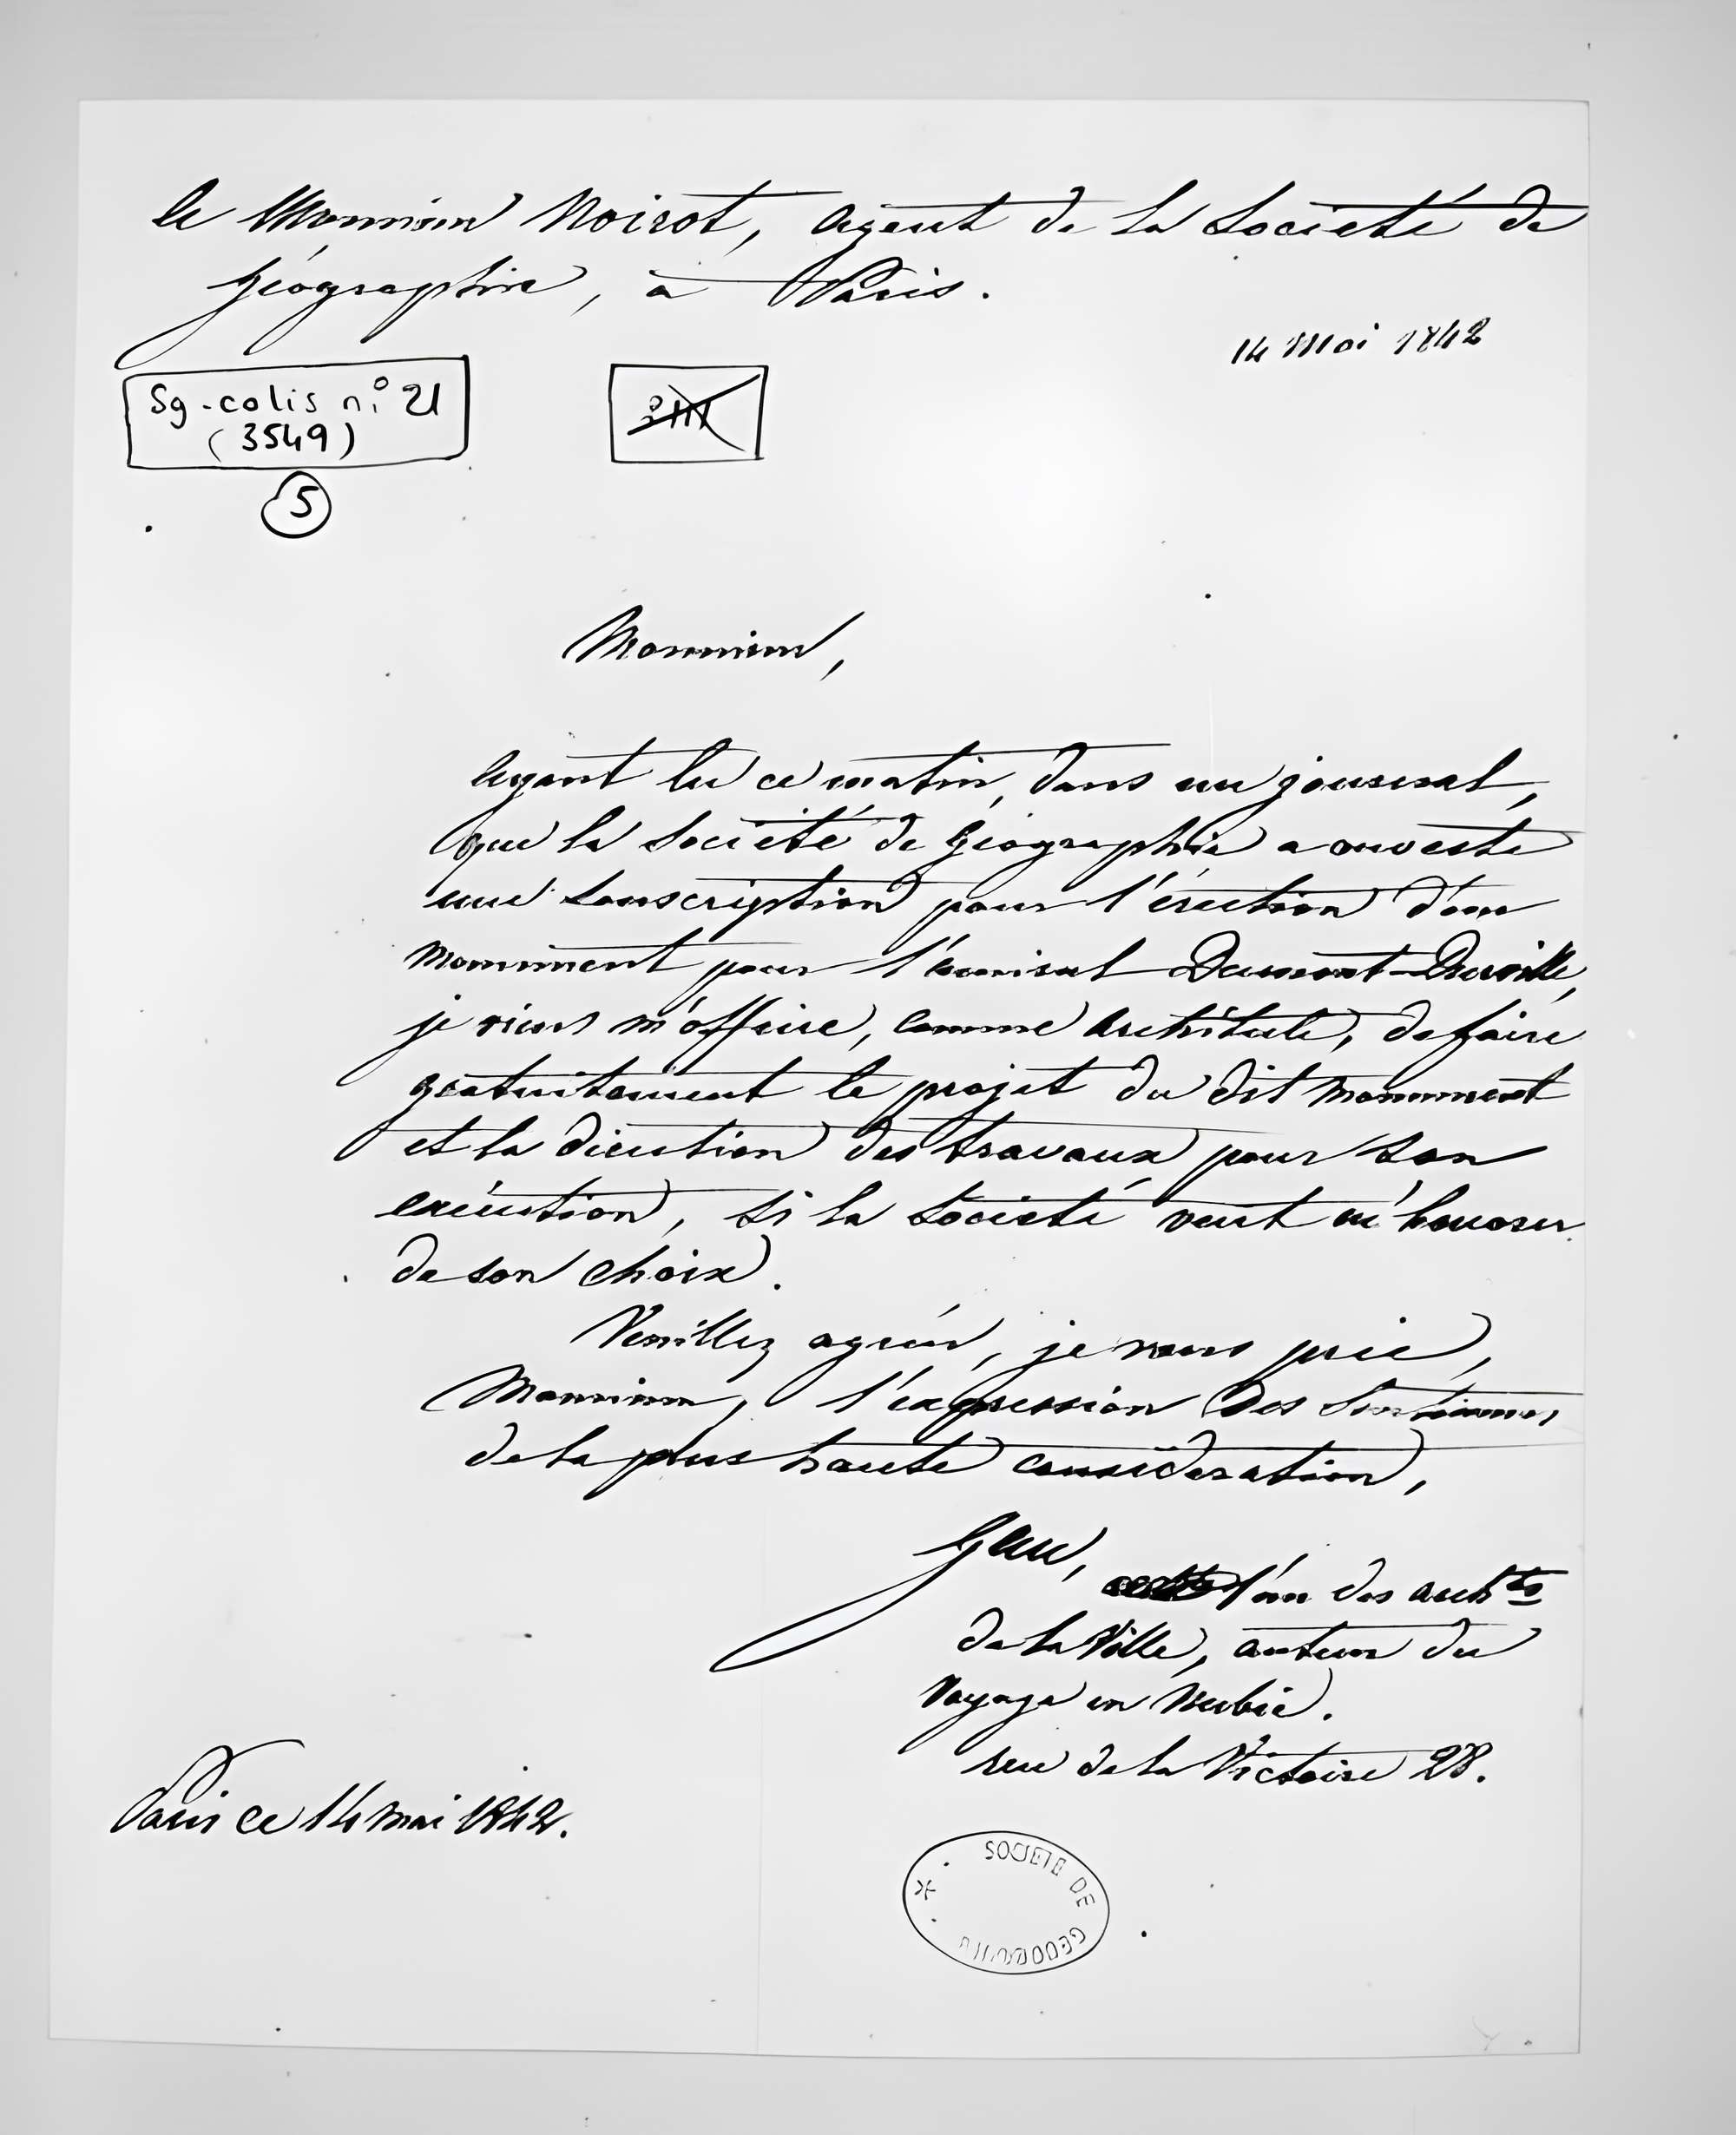 le Monsieur Noirot, agent de la Société de
géographie, à Paris.
14 Mai 1842
Sg-colis n° 21
(3549)
5
Monsieur,
Ayant lu ce matin, dans un journal,
que la Société de Géographie a ouverte
une souscription pour l'érection d'un
monument pour l'amiral Dumont-Durville,
je viens m'offrire, comme architecte, de faire
gratuitement le projet du dit monument
et la direction des travaux pour son
exécution, si la Société veut m'honorer
de son choix.
Veuillez agréer, je vous prie,
Monsieur, l'expression des sentimens
de la plus haute considération,
Gau,
l'un des archtes
de la Ville, auteur du
Voyage en Nubie.
rue de la Victoire 28.
Paris ce 14 mai 1842.
SOCIETE DE